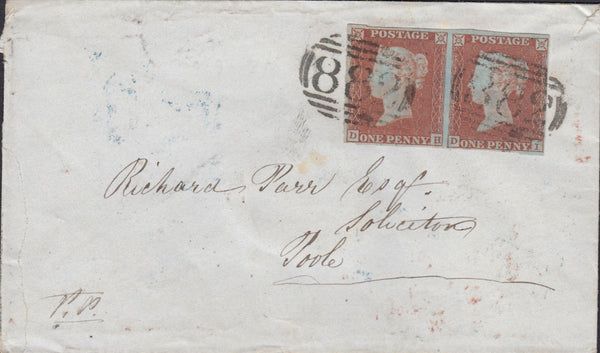 POSTAGE POSTAGE
D ONE PENNY H D ONE PENNY I
Richard Parr Esqr.
Solicitor
Poole
P.P.